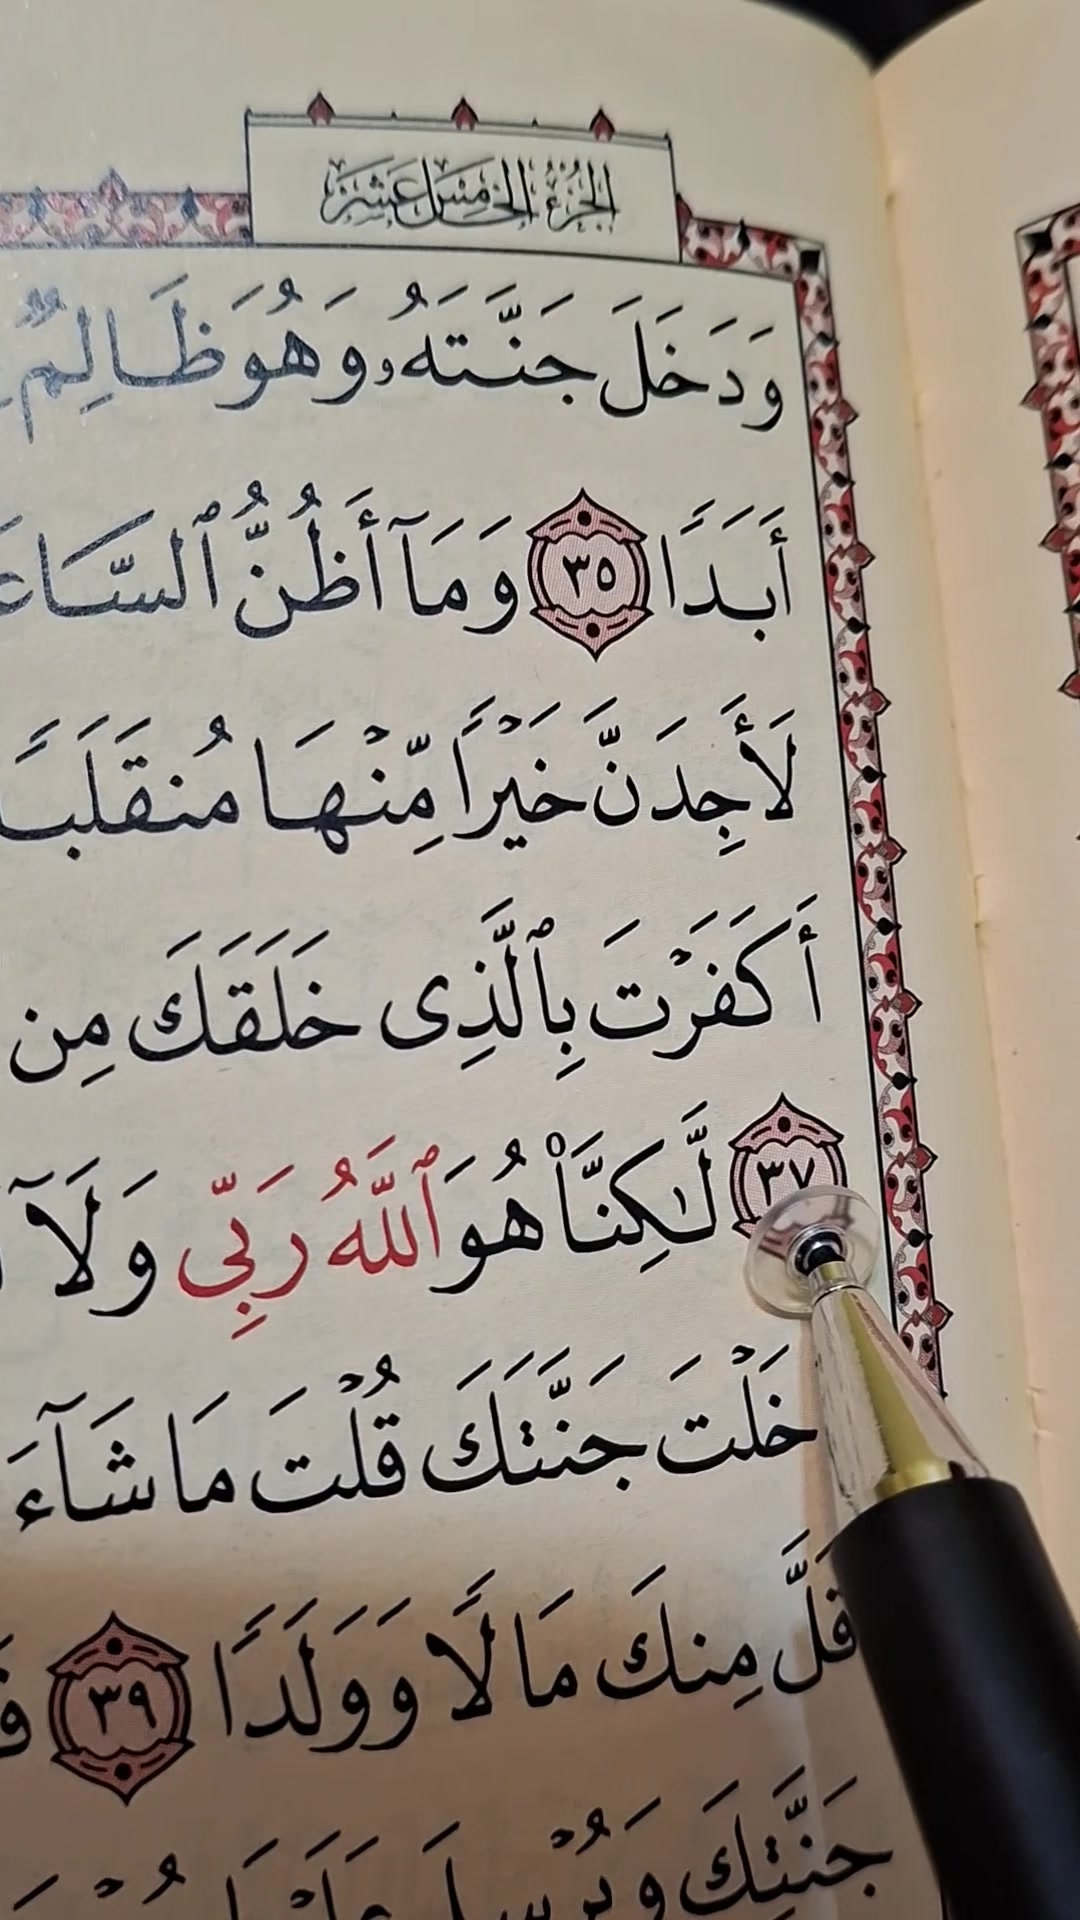 الجزء الخامس عشر
وَدَخَلَ جَنَّتَهُۥ وَهُوَ ظَالِمٌ
أَبَدًا ٣٥ وَمَآ أَظُنُّ
لَأَجِدَنَّ خَيْرًا مِّنْهَا مُنقَلَبًا
أَكَفَرْتَ بِٱلَّذِى خَلَقَكَ مِن
٣٧ لَّٰكِنَّا۠ هُوَ ٱللَّهُ رَبِّى وَلَآ
خَلْتَ جَنَّتَكَ قُلْتَ مَا شَآءَ
قَلَّ مِنكَ مَالًا وَوَلَدًا ٣٩
جَنَّتِكَ وَيُرْسِلَ